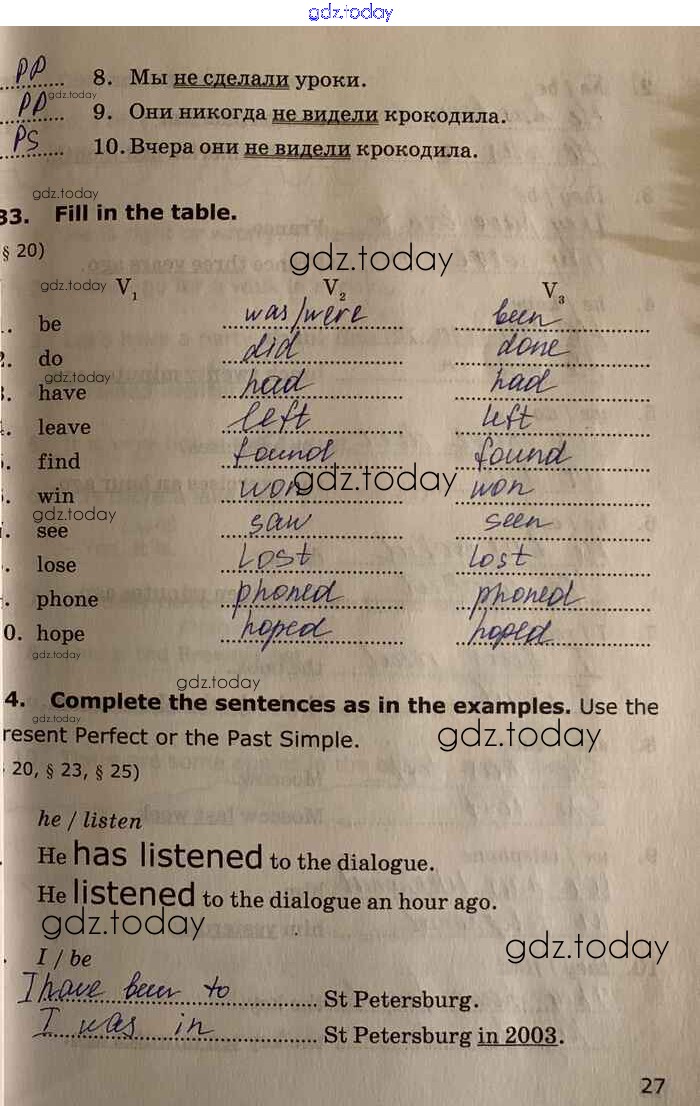 gdz.today
PP 8. Мы не сделали уроки.
gdz.today
PP 9. Они никогда не видели крокодила.
PS 10. Вчера они не видели крокодила.
gdz.today
33. Fill in the table.
§ 20)
gdz.today
gdz.today V1 V2 V3
be was/were been
do did done
gdz.today
have had had
leave left left
find found found
win won won
gdz.today
gdz.today
see saw seen
lose lost lost
phone phoned phoned
0. hope hoped hoped
gdz.today
gdz.today
4. Complete the sentences as in the examples. Use the
gdz.today
resent Perfect or the Past Simple.
gdz.today
20, § 23, § 25)
he / listen
He has listened to the dialogue.
He listened to the dialogue an hour ago.
gdz.today
gdz.today
I / be
I have been to St Petersburg.
I was in St Petersburg in 2003.
27